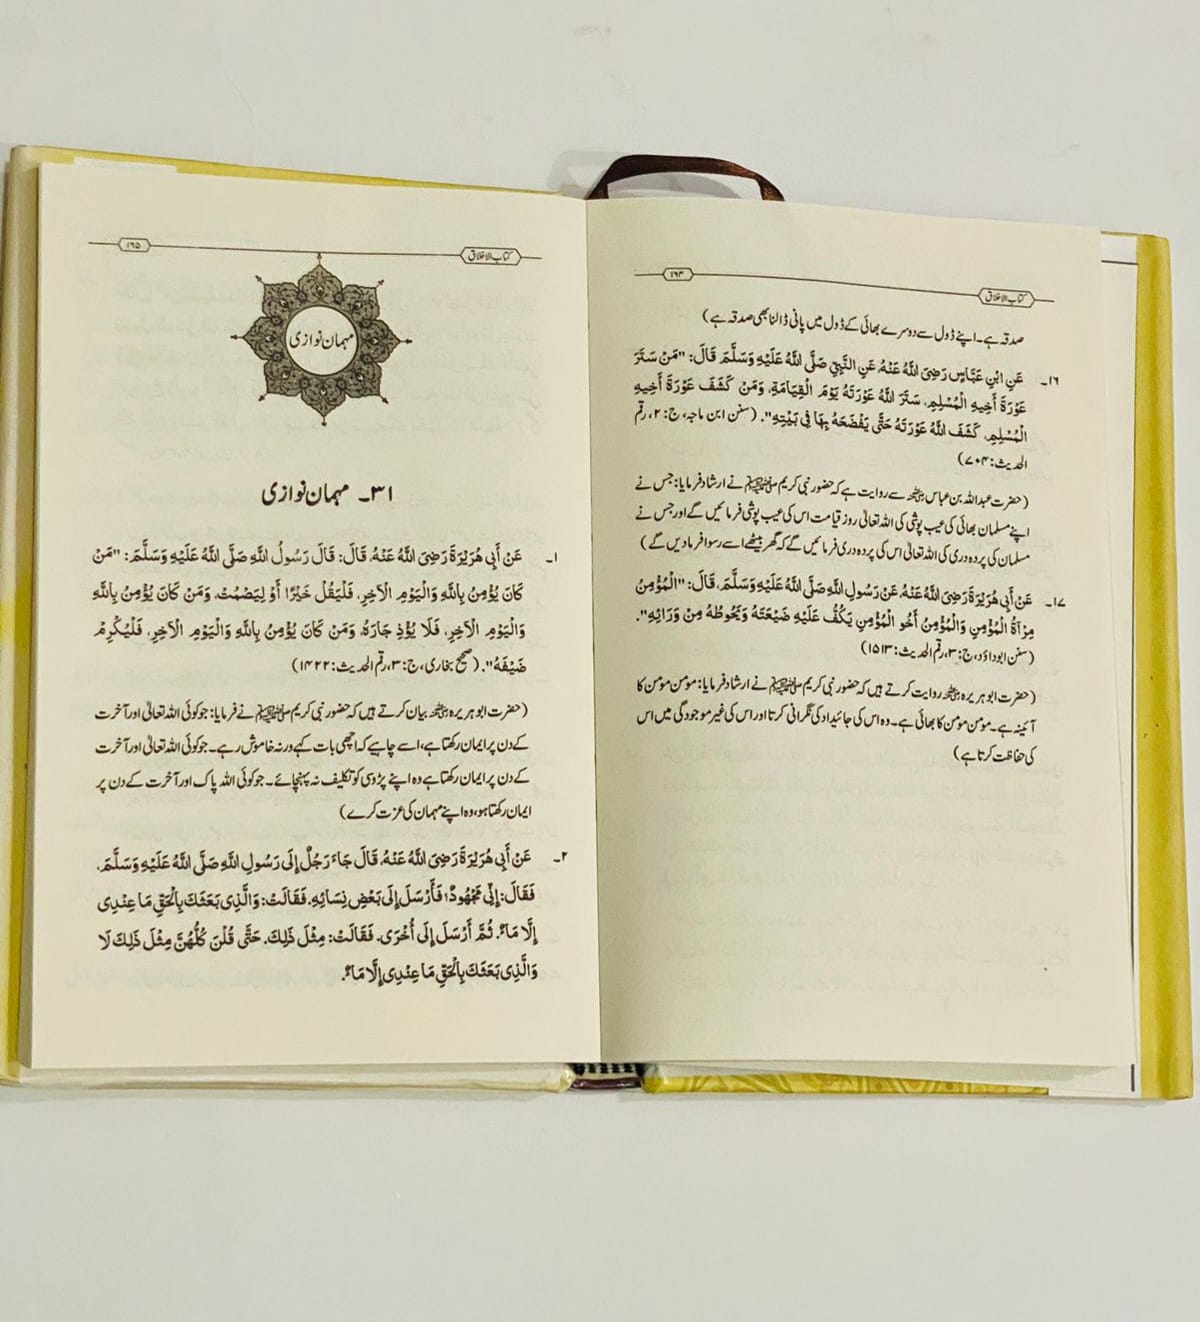 کتاب الاخلاق
۱۶۴
صدقہ ہے۔ اپنے ڈول سے دوسرے بھائی کے ڈول میں پانی ڈالنا بھی صدقہ ہے)
۱۶۔ عَنِ ابْنِ عَبَّاسٍ رَضِیَ اللّٰهُ عَنْهُ، عَنِ النَّبِیِّ صَلَّی اللّٰهُ عَلَیْهِ وَسَلَّمَ قَالَ: "مَنْ سَتَرَ
عَوْرَةَ أَخِیهِ الْمُسْلِمِ، سَتَرَ اللّٰهُ عَوْرَتَهُ یَوْمَ الْقِیَامَةِ، وَمَنْ کَشَفَ عَوْرَةَ أَخِیهِ
الْمُسْلِمِ، کَشَفَ اللّٰهُ عَوْرَتَهُ حَتَّی یَفْضَحَهُ بِهَا فِی بَیْتِهِ". (سنن ابن ماجہ، ج: ۲، رقم
الحدیث: ۷۰۴)
(حضرت عبداللہ بن عباس رضی اللہ عنہ سے روایت ہے کہ حضور نبی کریم صلی اللہ علیہ وسلم نے ارشاد فرمایا: جس نے
اپنے مسلمان بھائی کی عیب پوشی کی اللہ تعالیٰ روز قیامت اس کی عیب پوشی فرمائیں گے اور جس نے
مسلمان کی پردہ دری کی اللہ تعالیٰ اس کی پردہ دری فرمائیں گے کہ گھر بیٹھے اسے رسوا فرمادیں گے)
۱۷۔ عَنْ أَبِی هُرَیْرَةَ رَضِیَ اللّٰهُ عَنْهُ، عَنْ رَسُولِ اللّٰهِ صَلَّی اللّٰهُ عَلَیْهِ وَسَلَّمَ، قَالَ: "الْمُؤْمِنُ
مِرْآةُ الْمُؤْمِنِ وَالْمُؤْمِنُ أَخُو الْمُؤْمِنِ یَکُفُّ عَلَیْهِ ضَیْعَتَهُ وَیَحُوطُهُ مِنْ وَرَائِهِ".
(سنن ابوداؤد، ج: ۳، رقم الحدیث: ۱۵۱۳)
(حضرت ابو ہریرہ رضی اللہ عنہ روایت کرتے ہیں کہ حضور نبی کریم صلی اللہ علیہ وسلم نے ارشاد فرمایا: مومن مومن کا
آئینہ ہے۔ مومن مومن کا بھائی ہے۔ وہ اس کی جائیداد کی نگرانی کرتا اور اس کی غیر موجودگی میں اس
کی حفاظت کرتا ہے)
کتاب الاخلاق
۱۶۵
مہمان نوازی
۳۱۔ مہمان نوازی
۱۔ عَنْ أَبِی هُرَیْرَةَ رَضِیَ اللّٰهُ عَنْهُ، قَالَ: قَالَ رَسُولُ اللّٰهِ صَلَّی اللّٰهُ عَلَیْهِ وَسَلَّمَ: "مَنْ
کَانَ یُؤْمِنُ بِاللّٰهِ وَالْیَوْمِ الْآخِرِ، فَلْیَقُلْ خَیْرًا أَوْ لِیَصْمُتْ، وَمَنْ کَانَ یُؤْمِنُ بِاللّٰهِ
وَالْیَوْمِ الْآخِرِ، فَلَا یُؤْذِ جَارَهُ، وَمَنْ کَانَ یُؤْمِنُ بِاللّٰهِ وَالْیَوْمِ الْآخِرِ، فَلْیُکْرِمْ
ضَیْفَهُ". (صحیح بخاری، ج: ۳، رقم الحدیث: ۱۴۲۲)
(حضرت ابو ہریرہ رضی اللہ عنہ بیان کرتے ہیں کہ حضور نبی کریم صلی اللہ علیہ وسلم نے فرمایا: جو کوئی اللہ تعالیٰ اور آخرت
کے دن پر ایمان رکھتا ہے، اسے چاہیے کہ اچھی بات کہے ورنہ خاموش رہے۔ جو کوئی اللہ تعالیٰ اور آخرت
کے دن پر ایمان رکھتا ہے وہ اپنے پڑوسی کو تکلیف نہ پہنچائے۔ جو کوئی اللہ پاک اور آخرت کے دن پر
ایمان رکھتا ہو، وہ اپنے مہمان کی عزت کرے)
۲۔ عَنْ أَبِی هُرَیْرَةَ رَضِیَ اللّٰهُ عَنْهُ، قَالَ جَاءَ رَجُلٌ إِلَی رَسُولِ اللّٰهِ صَلَّی اللّٰهُ عَلَیْهِ وَسَلَّمَ،
فَقَالَ: إِنِّی مَجْهُودٌ، فَأَرْسَلَ إِلَی بَعْضِ نِسَائِهِ، فَقَالَتْ: وَالَّذِی بَعَثَكَ بِالْحَقِّ مَا عِنْدِی
إِلَّا مَاءٌ، ثُمَّ أَرْسَلَ إِلَی أُخْرَی، فَقَالَتْ: مِثْلَ ذَلِكَ، حَتَّی قُلْنَ کُلُّهُنَّ مِثْلَ ذَلِكَ لَا
وَالَّذِی بَعَثَكَ بِالْحَقِّ مَا عِنْدِی إِلَّا مَاءٌ،